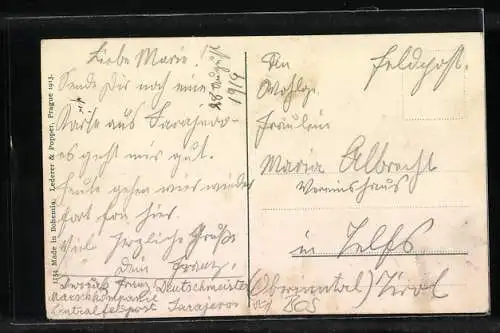 Liebe Marie!
28 August
1914
Sende Dir noch eine
Karte aus Sarajevo
es geht mir gut.
Heute gehen wir wieder
fort von hier.
Viel herzliche Grüße
Dein Franz.
Franz Deutschmeister
Marschkompanie
Zentralfeldpost Sarajevo
1154 Made in Bohemia. Lederer & Popper, Prague 1913.
Feldpost.
An
Wohlge.
Fräulein
Maria Albrecht
Vereinshaus
in Telfs
(Oberinntal) Tirol